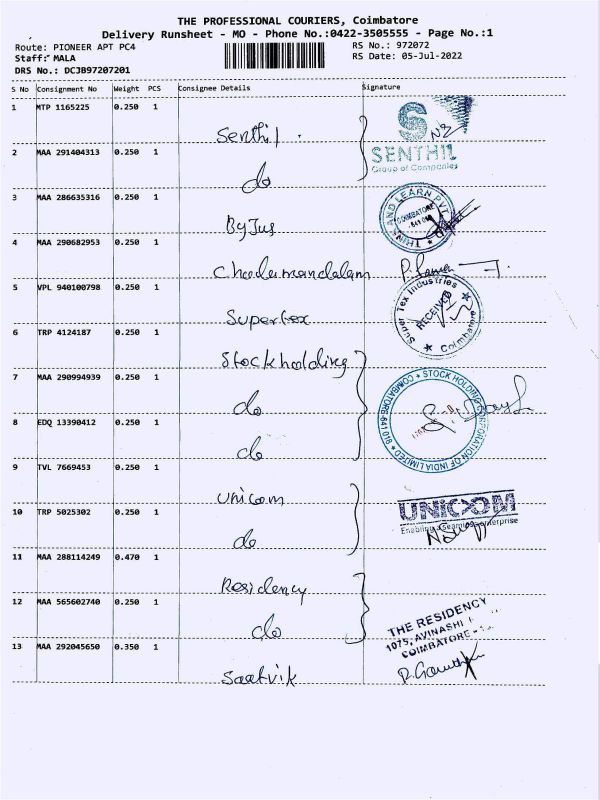 THE PROFESSIONAL COURIERS, Coimbatore
Delivery Runsheet - MO - Phone No.:0422-3505555 - Page No.:1
Route: PIONEER APT PC4
RS No.: 972072
Staff: MALA
RS Date: 05-Jul-2022
DRS No.: DCJB97207201
S No Consignment No Weight PCS Consignee Details Signature
1 MTP 1165225 0.250 1
Senthil
SENTHIL
Group of Companies
2 MAA 291404313 0.250 1
do
3 MAA 286635316 0.250 1
Byjus
THINK AND LEARN PVT
COIMBATORE
4 MAA 290682953 0.250 1
Cholamandalam
5 VPL 940100798 0.250 1
Supertex
Super Tex Industries
RECEIVED
Coimbatore
6 TRP 4124187 0.250 1
Stockholding
7 MAA 290994939 0.250 1
do
STOCK HOLDING CORPORATION OF INDIA LIMITED
8 EDQ 13390412 0.250 1
do
9 TVL 7669453 0.250 1
Unicom
UNICOM
10 TRP 5025302 0.250 1
do
11 MAA 288114249 0.470 1
Residency
12 MAA 565602740 0.250 1
do
THE RESIDENCY
1075, AVINASHI
COIMBATORE -
13 MAA 292045650 0.350 1
Saatvik